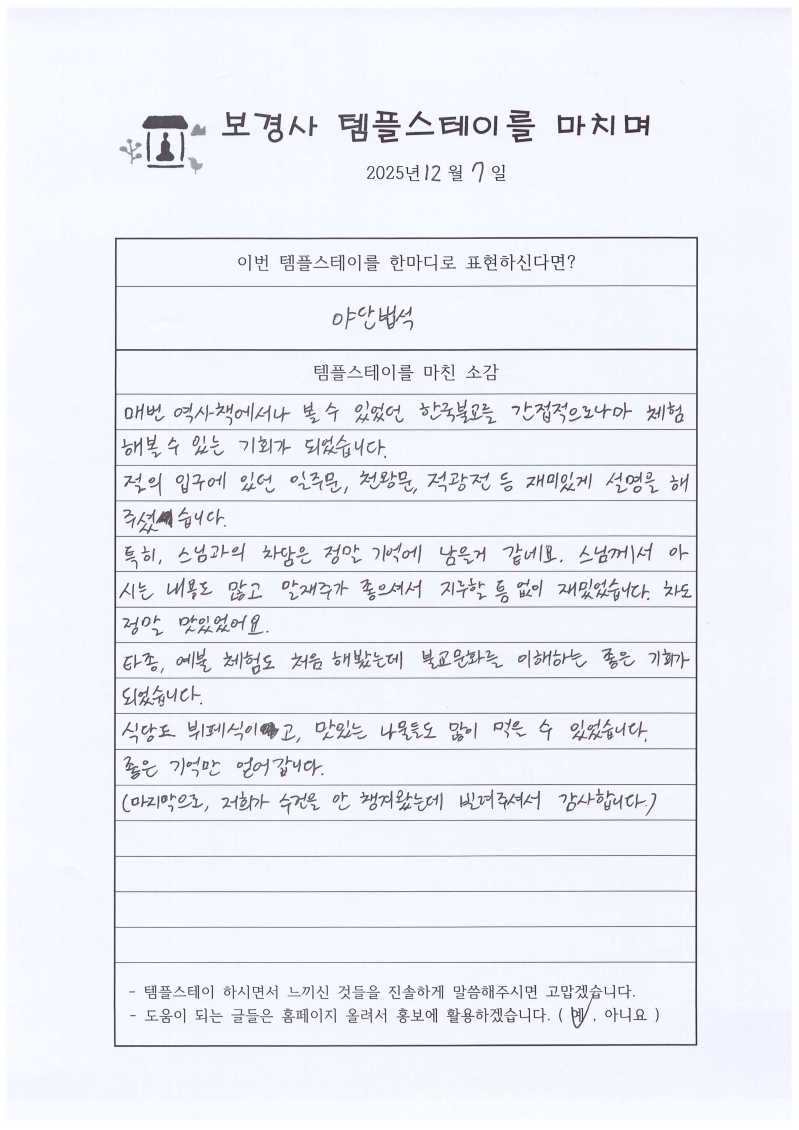 보경사 템플스테이를 마치며
2025년 12 월 7 일
이번 템플스테이를 한마디로 표현하신다면?
야단법석
템플스테이를 마친 소감
매번 역사책에서나 볼 수 있었던 한국불교를 간접적으로나마 체험
해볼 수 있는 기회가 되었습니다.
절의 입구에 있던 일주문, 천왕문, 적광전 등 재미있게 설명을 해
주셨습니다.
특히, 스님과의 차담은 정말 기억에 남을거 같네요. 스님께서 아
시는 내용도 많고 말재주가 좋으셔서 지루할 틈 없이 재밌었습니다. 차도
정말 맛있었어요.
타종, 예불 체험도 처음 해봤는데 불교문화를 이해하는 좋은 기회가
되었습니다.
식당도 뷔페식이고, 맛있는 나물들도 많이 먹을 수 있었습니다.
좋은 기억만 얻어갑니다.
(마지막으로, 저희가 수건을 안 챙겨왔는데 빌려주셔서 감사합니다.)
- 템플스테이 하시면서 느끼신 것들을 진솔하게 말씀해주시면 고맙겠습니다.
- 도움이 되는 글들은 홈페이지 올려서 홍보에 활용하겠습니다. ( 예 , 아니요 )